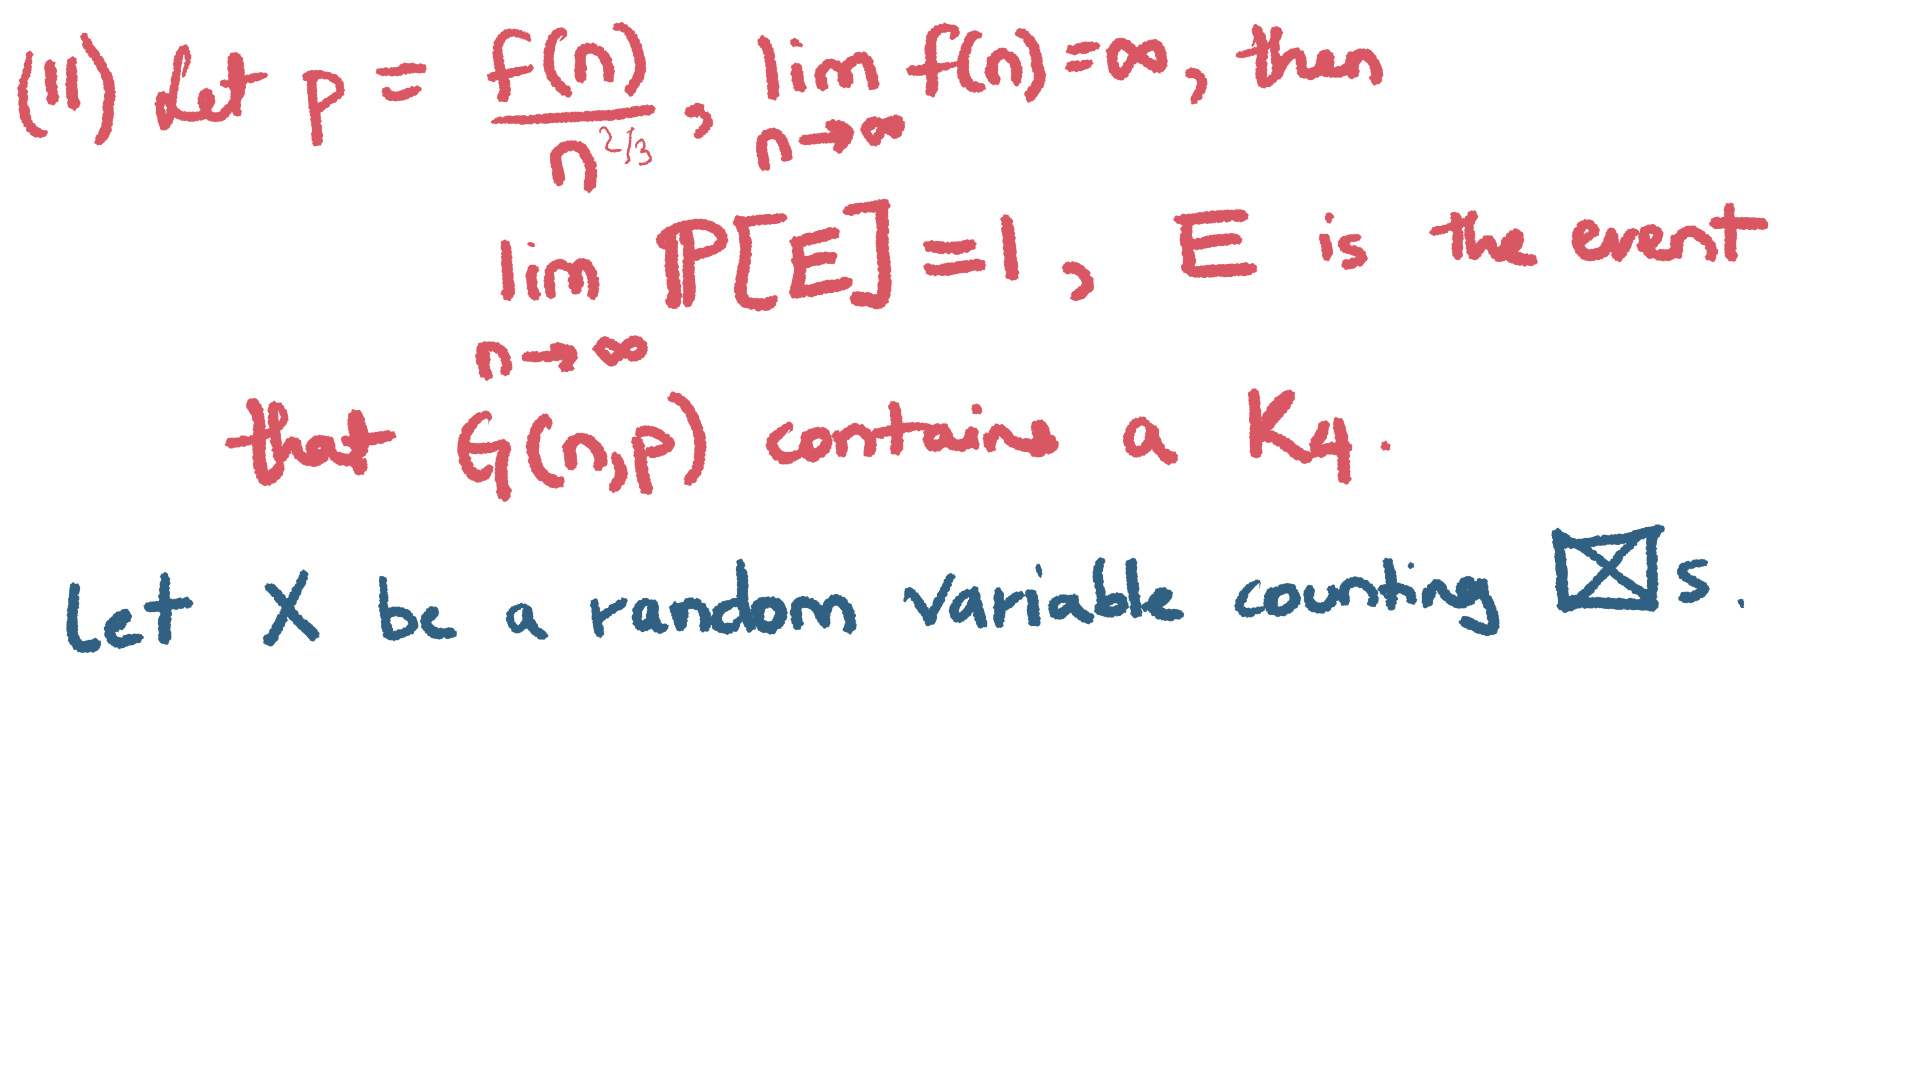 (11) Let p = f(n)/n^{2/3}, lim_{n→∞} f(n) = ∞, then
lim_{n→∞} ℙ[E] = 1, E is the event
that G(n,p) contains a K₄.
Let X be a random variable counting ⊠s.